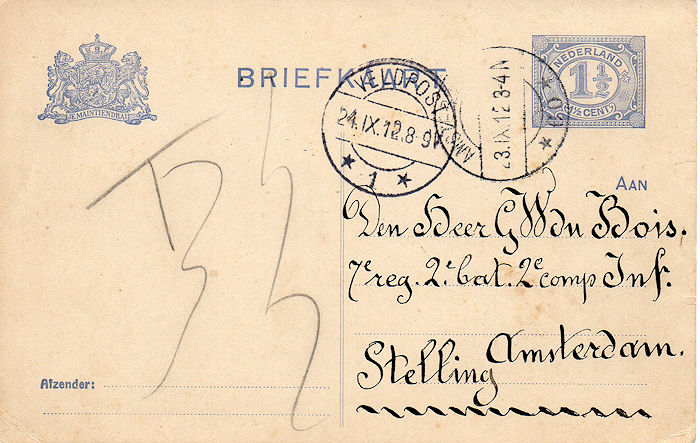 JE MAINTIENDRAI
BRIEFKAART
NEDERLAND
1½
(1½ CENT)
VELDPOST
24.IX.12.8-9V
1
23.IX.12 3-4N
AAN
Den Heer G W du Bois.
7e reg. 2e bat. 2e comp Inf.
Stelling Amsterdam.
Afzender: